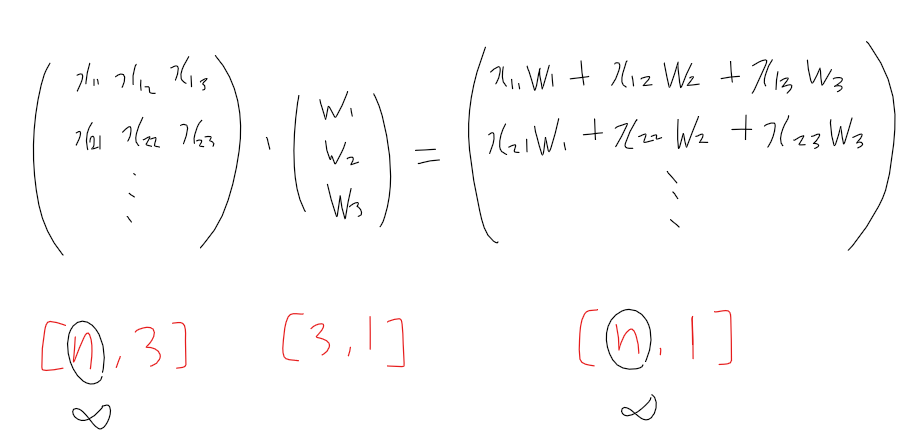 x₁₁ x₁₂ x₁₃
x₂₁ x₂₂ x₂₃
⋮
·
w₁
w₂
w₃
=
x₁₁w₁ + x₁₂w₂ + x₁₃w₃
x₂₁w₁ + x₂₂w₂ + x₂₃w₃
⋮
[n, 3] [3, 1] [n, 1]
∞ ∞